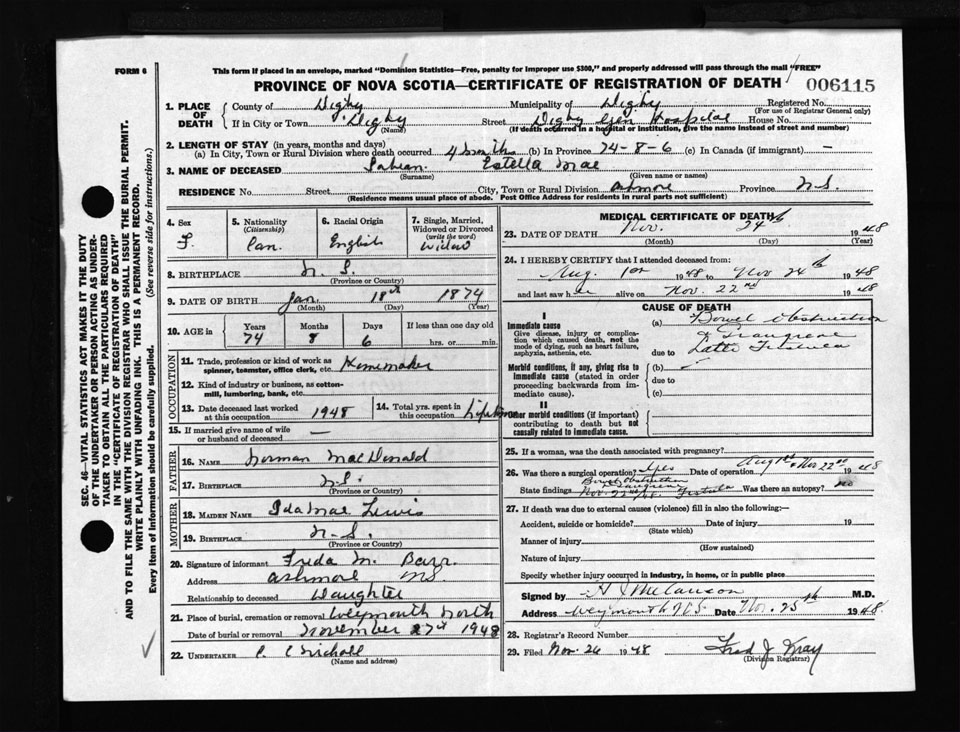 FORM 6
This form if placed in an envelope, marked "Dominion Statistics—Free, penalty for improper use $300," and properly addressed will pass through the mail "FREE"
PROVINCE OF NOVA SCOTIA—CERTIFICATE OF REGISTRATION OF DEATH
006115
1. PLACE OF DEATH
County of Digby Municipality of Digby Registered No.
(For use of Registrar General only)
If in City or Town Digby Street Digby Gen Hospital House No.
(Name) (If death occurred in a hospital or institution, give the name instead of street and number)
2. LENGTH OF STAY (in years, months and days)
(a) In City, Town or Rural Division where death occurred 4 months (b) In Province 74-8-6 (c) In Canada (if immigrant) —
3. NAME OF DECEASED Estella Mae
(Surname) (Given name or names)
RESIDENCE No. Street City, Town or Rural Division Ashmore Province N.S.
(Residence means usual place of abode. Post Office Address for residents in rural parts not sufficient)
4. Sex
F.
5. Nationality
(Citizenship)
Can.
6. Racial Origin
English
7. Single, Married, Widowed or Divorced
(write the word)
Widow
8. BIRTHPLACE N. S.
(Province or Country)
9. DATE OF BIRTH Jan. 18th 1874
(Month) (Day) (Year)
10. AGE in
Years Months Days If less than one day old
74 8 6 hrs. or min.
OCCUPATION
11. Trade, profession or kind of work as spinner, teamster, office clerk, etc. Homemaker
12. Kind of industry or business, as cotton-mill, lumbering, bank, etc.
13. Date deceased last worked at this occupation 1948
14. Total yrs. spent in this occupation Lifetime
15. If married give name of wife or husband of deceased —
FATHER
16. NAME Norman MacDonald
17. BIRTHPLACE N.S.
MOTHER
18. MAIDEN NAME Ida Mae Lewis
19. BIRTHPLACE N.S.
(Province or Country)
20. Signature of informant Freda M. Barr.
Address Ashmore NS
Relationship to deceased Daughter
21. Place of burial, cremation or removal Weymouth North
Date of burial or removal November 27th 1948
22. UNDERTAKER
(Name and address)
MEDICAL CERTIFICATE OF DEATH
23. DATE OF DEATH Nov. 24th 1948
(Month) (Day) (Year)
24. I HEREBY CERTIFY that I attended deceased from:
Aug. 1st 1948 to Nov 24th 1948
and last saw her alive on Nov. 22nd 1948
CAUSE OF DEATH
I
Immediate cause
Give disease, injury or complication which caused death, not the mode of dying, such as heart failure, asphyxia, asthenia, etc.
Morbid conditions, if any, giving rise to immediate cause (stated in order proceeding backwards from immediate cause).
II
Other morbid conditions (if important) contributing to death but not causally related to immediate cause.
(a) Bowel Obstruction
& Gangrene
due to
(b)
due to
(c)
25. If a woman, was the death associated with pregnancy?
26. Was there a surgical operation? Yes Date of operation Aug 1st & Nov 22nd 1948
State findings Bowel obstruction Gangrene Nov. 22nd/48. Fistula Was there an autopsy? no
27. If death was due to external causes (violence) fill in also the following:—
Accident, suicide or homicide? Date of injury 19
(State which)
Manner of injury
(How sustained)
Nature of injury
Specify whether injury occurred in industry, in home, or in public place
Signed by M.D.
Address Weymouth N.S. Date Nov. 25th 1948.
28. Registrar's Record Number
29. Filed Nov. 26 1948 Fred J.
(Division Registrar)
SEC. 46—VITAL STATISTICS ACT MAKES IT THE DUTY OF THE UNDERTAKER OR PERSON ACTING AS UNDERTAKER TO OBTAIN ALL THE PARTICULARS REQUIRED IN THE "CERTIFICATE OF REGISTRATION OF DEATH" AND TO FILE THE SAME WITH THE DIVISION REGISTRAR WHO SHALL ISSUE THE BURIAL PERMIT.
WRITE PLAINLY WITH UNFADING INK. THIS IS A PERMANENT RECORD.
Every item of information should be carefully supplied. (See reverse side for instructions.)